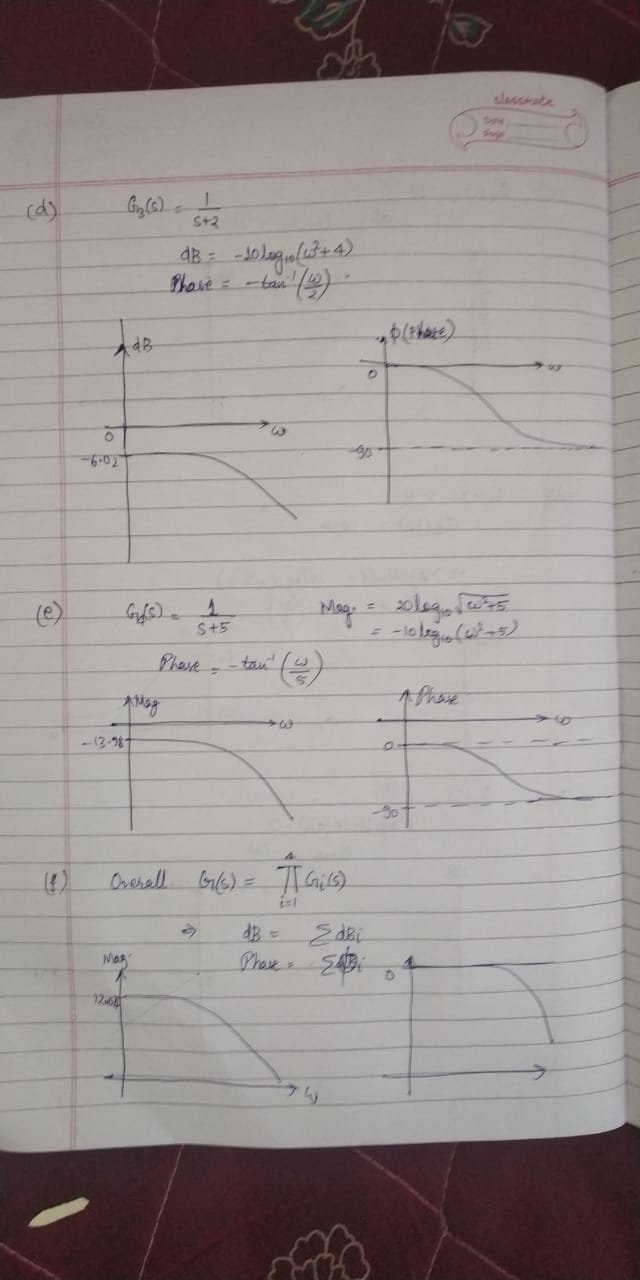 classmate
Date
Page
(d) G₃(s) = 1/(s+2)
dB = -10log₁₀(ω²+4)
Phase = -tan⁻¹(ω/2)
dB
ϕ(Phase)
0 ω
0 ω
-6.02
-90
(e) G₄(s) = 1/(s+5) Mag. = 20log₁₀√(ω²+5)
= -10log₁₀(ω²+5)
Phase = -tan⁻¹(ω/5)
Mag ω
Phase ω
-13.98
0
-90
(f) Overall G(s) = ∏ᵢ₌₁⁴ Gᵢ(s)
⇒ dB = ΣdBᵢ
Phase = Σϕᵢ
Mag
0
ω